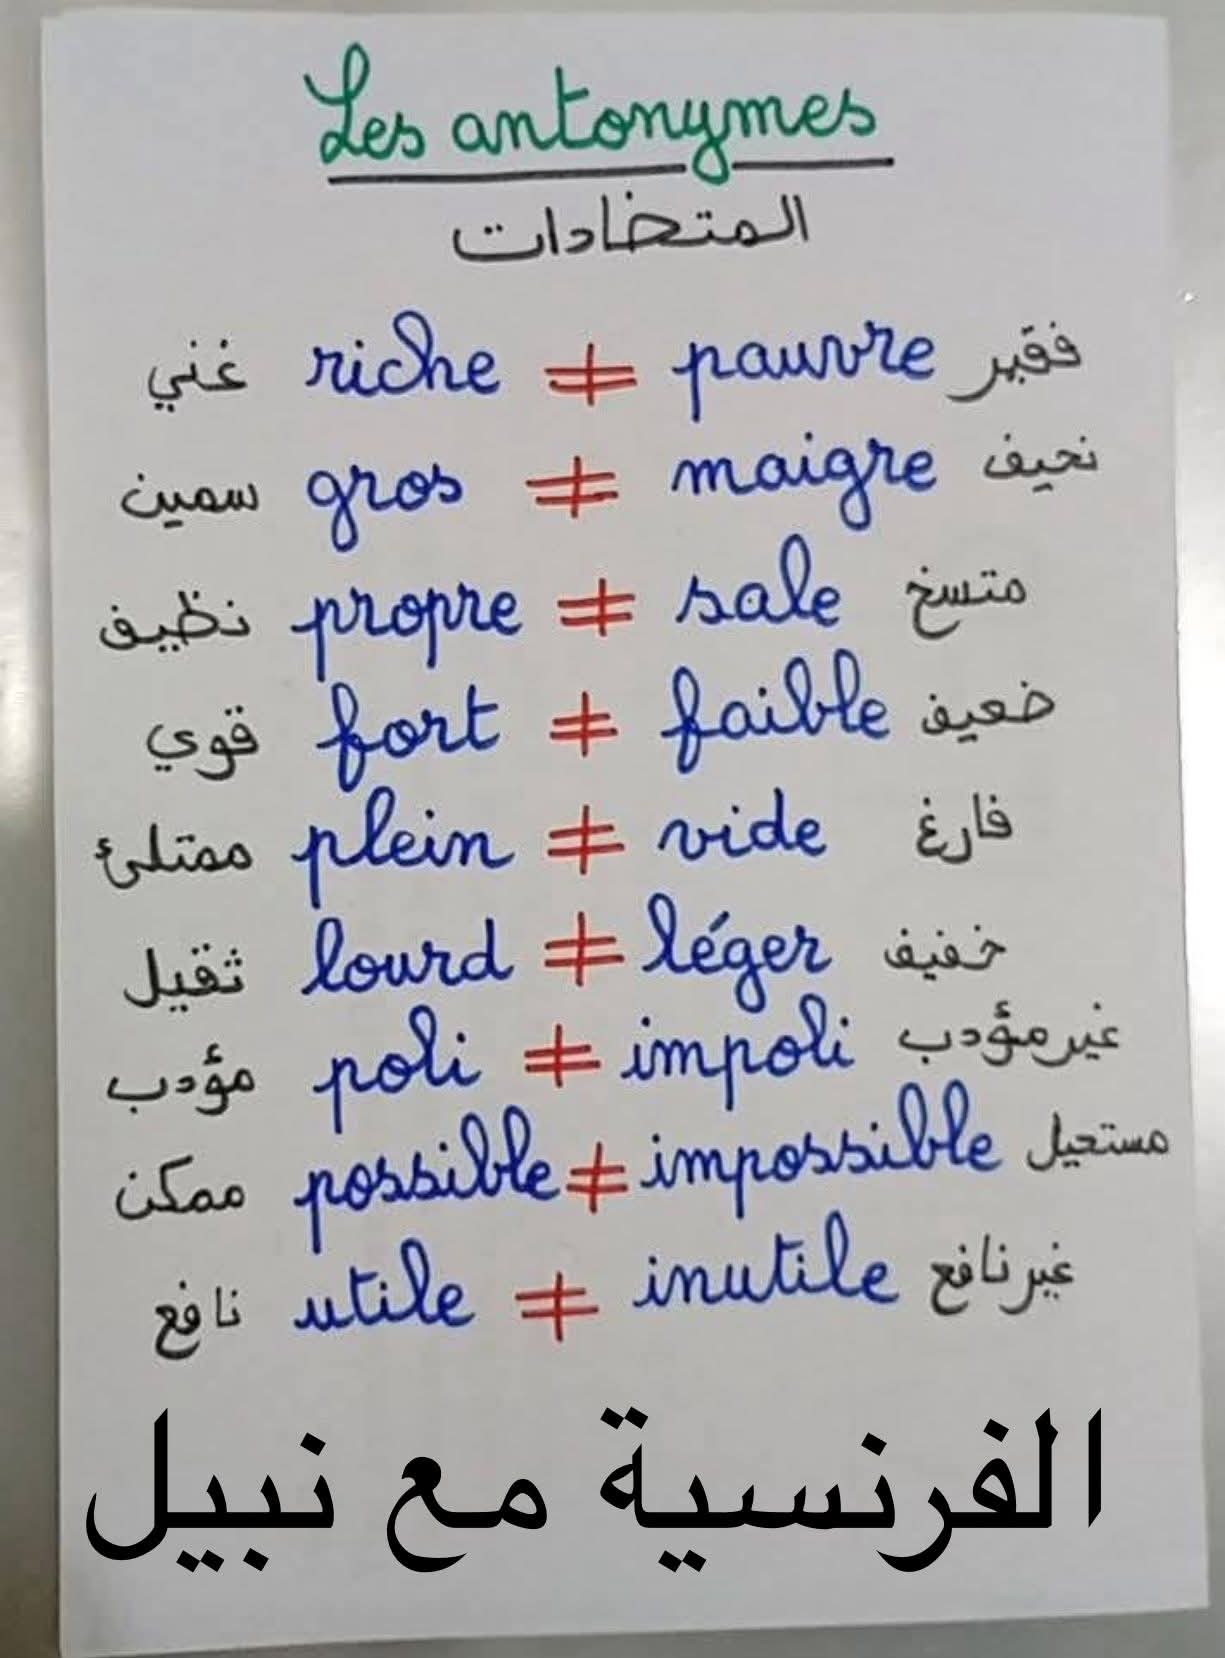 Les antonymes
المتضادات
غني riche ≠ pauvre فقير
سمين gros ≠ maigre نحيف
نظيف propre ≠ sale متسخ
قوي fort ≠ faible ضعيف
ممتلئ plein ≠ vide فارغ
ثقيل lourd ≠ léger خفيف
مؤدب poli ≠ impoli غير مؤدب
ممكن possible ≠ impossible مستحيل
نافع utile ≠ inutile غير نافع
الفرنسية مع نبيل